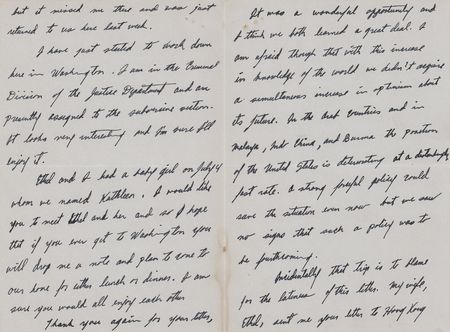 but it missed me there and was just
returned to us here last week.
I have just started to work down
here in Washington. I am in the Criminal
Division of the Justice Department and am
presently assigned to the subversive section.
It looks very interesting and I'm sure I'll
enjoy it.
Ethel and I had a baby girl on July 4
whom we named Kathleen. I would like
you to meet Ethel and her and so I hope
that if you ever get to Washington you
will drop me a note and plan to come to
our home for either lunch or dinner. I am
sure you would all enjoy each other
Thank you again for your letter,
It was a wonderful opportunity and
I think we both learned a great deal. I
am afraid though that with this increase
in knowledge of the world we didn't acquire
a simultaneous increase in optimism about
its future. In the Arab Countries and in
Malaya, Indo China, and Burma the position
of the United States is deteriorating at a
fast rate. A strong policy could
save the situation even now but we saw
no signs that such a policy was to
be forthcoming.
Incidentally that trip is to blame
for the lateness of this letter. My wife,
Ethel, sent me your letter to Hong Kong